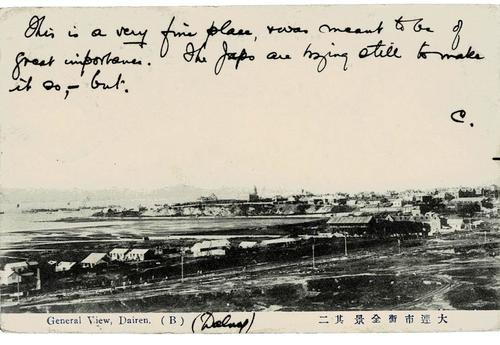 This is a very fine place, & was meant to be of
great importance. The Japs are trying still to make
it so, - but.
C.
General View, Dairen. (B) (Dalny)
大連市街全景 其二